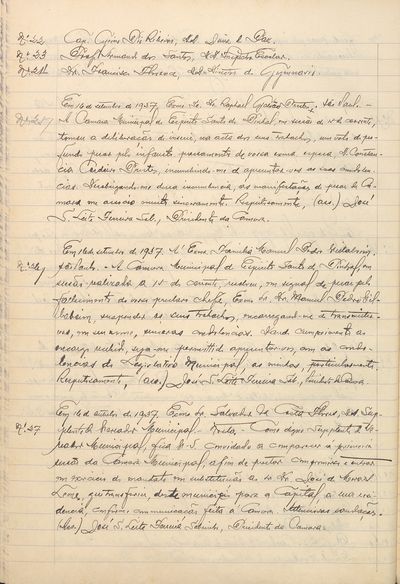 Nº 22 Cap. Dias Ribeiro, Juiz de Paz.
Nº 23 Prof. Armando dos Santos, Inspector Escolar.
Nº 24 Dr. Francisco Director do Gymnasio.
Em 16 de setembro de 1937. Exmo. Sr. Dr. Raphael São Paulo. -
A Camara Municipal de Espirito Santo do Pinhal, em sessão de 15 do corrente,
tomou a deliberação de inserir, na acta dos seus trabalhos, um voto de pro-
fundo pesar pelo infausto passamento de vossa exma. esposa, D.
incumbindo-me de apresentar-vos as suas condolen-
cias. Desobrigando-me dessa incumbencia, as manifestações de pesar da Ca-
mara me associo muito sinceramente. Respeitosamente, (ass.) José
S. Leite Ferreira Presidente da Camara.
Em 16 de setembro de 1937. A' Exma. Familia Manoel Pedro
São Paulo. - A Camara Municipal de Espirito Santo do Pinhal, em
sessão realizada a 15 do corrente, resolveu, em signal de pesar pelo
fallecimento do vosso prezado chefe, Exmo. Sr. Dr. Manuel Pedro
suspender os seus trabalhos, encarregando-me de transmittir-
vos, em seu nome, sinceras condolencias. Dando cumprimento ao
encargo recebido, seja-me permittido apresentar-vos, com as condo-
lencias do Legislativo Municipal, as minhas, particularmente.
Respeitosamente, (ass.) José S. Leite Ferreira Presidente da Camara.
Nº 27 Em 16 de setembro de 1937. Exmo. Sr. Salvador da Costa DD. Sup-
plente de Vereador Municipal. - Nesta. - Como digno Supplente de Ve-
reador Municipal, fica V. S. convidado a comparecer á primeira
sessão da Camara Municipal, afim de prestar compromisso e entrar
em exercicio do mandato em substituição ao Sr. José de
Leme, que transferiu, deste municipio para a Capital, a sua resi-
dencia, conforme communicação feita á Camara. Attenciosas saudações.
(ass.) José S. Leite Ferreira Presidente da Camara.